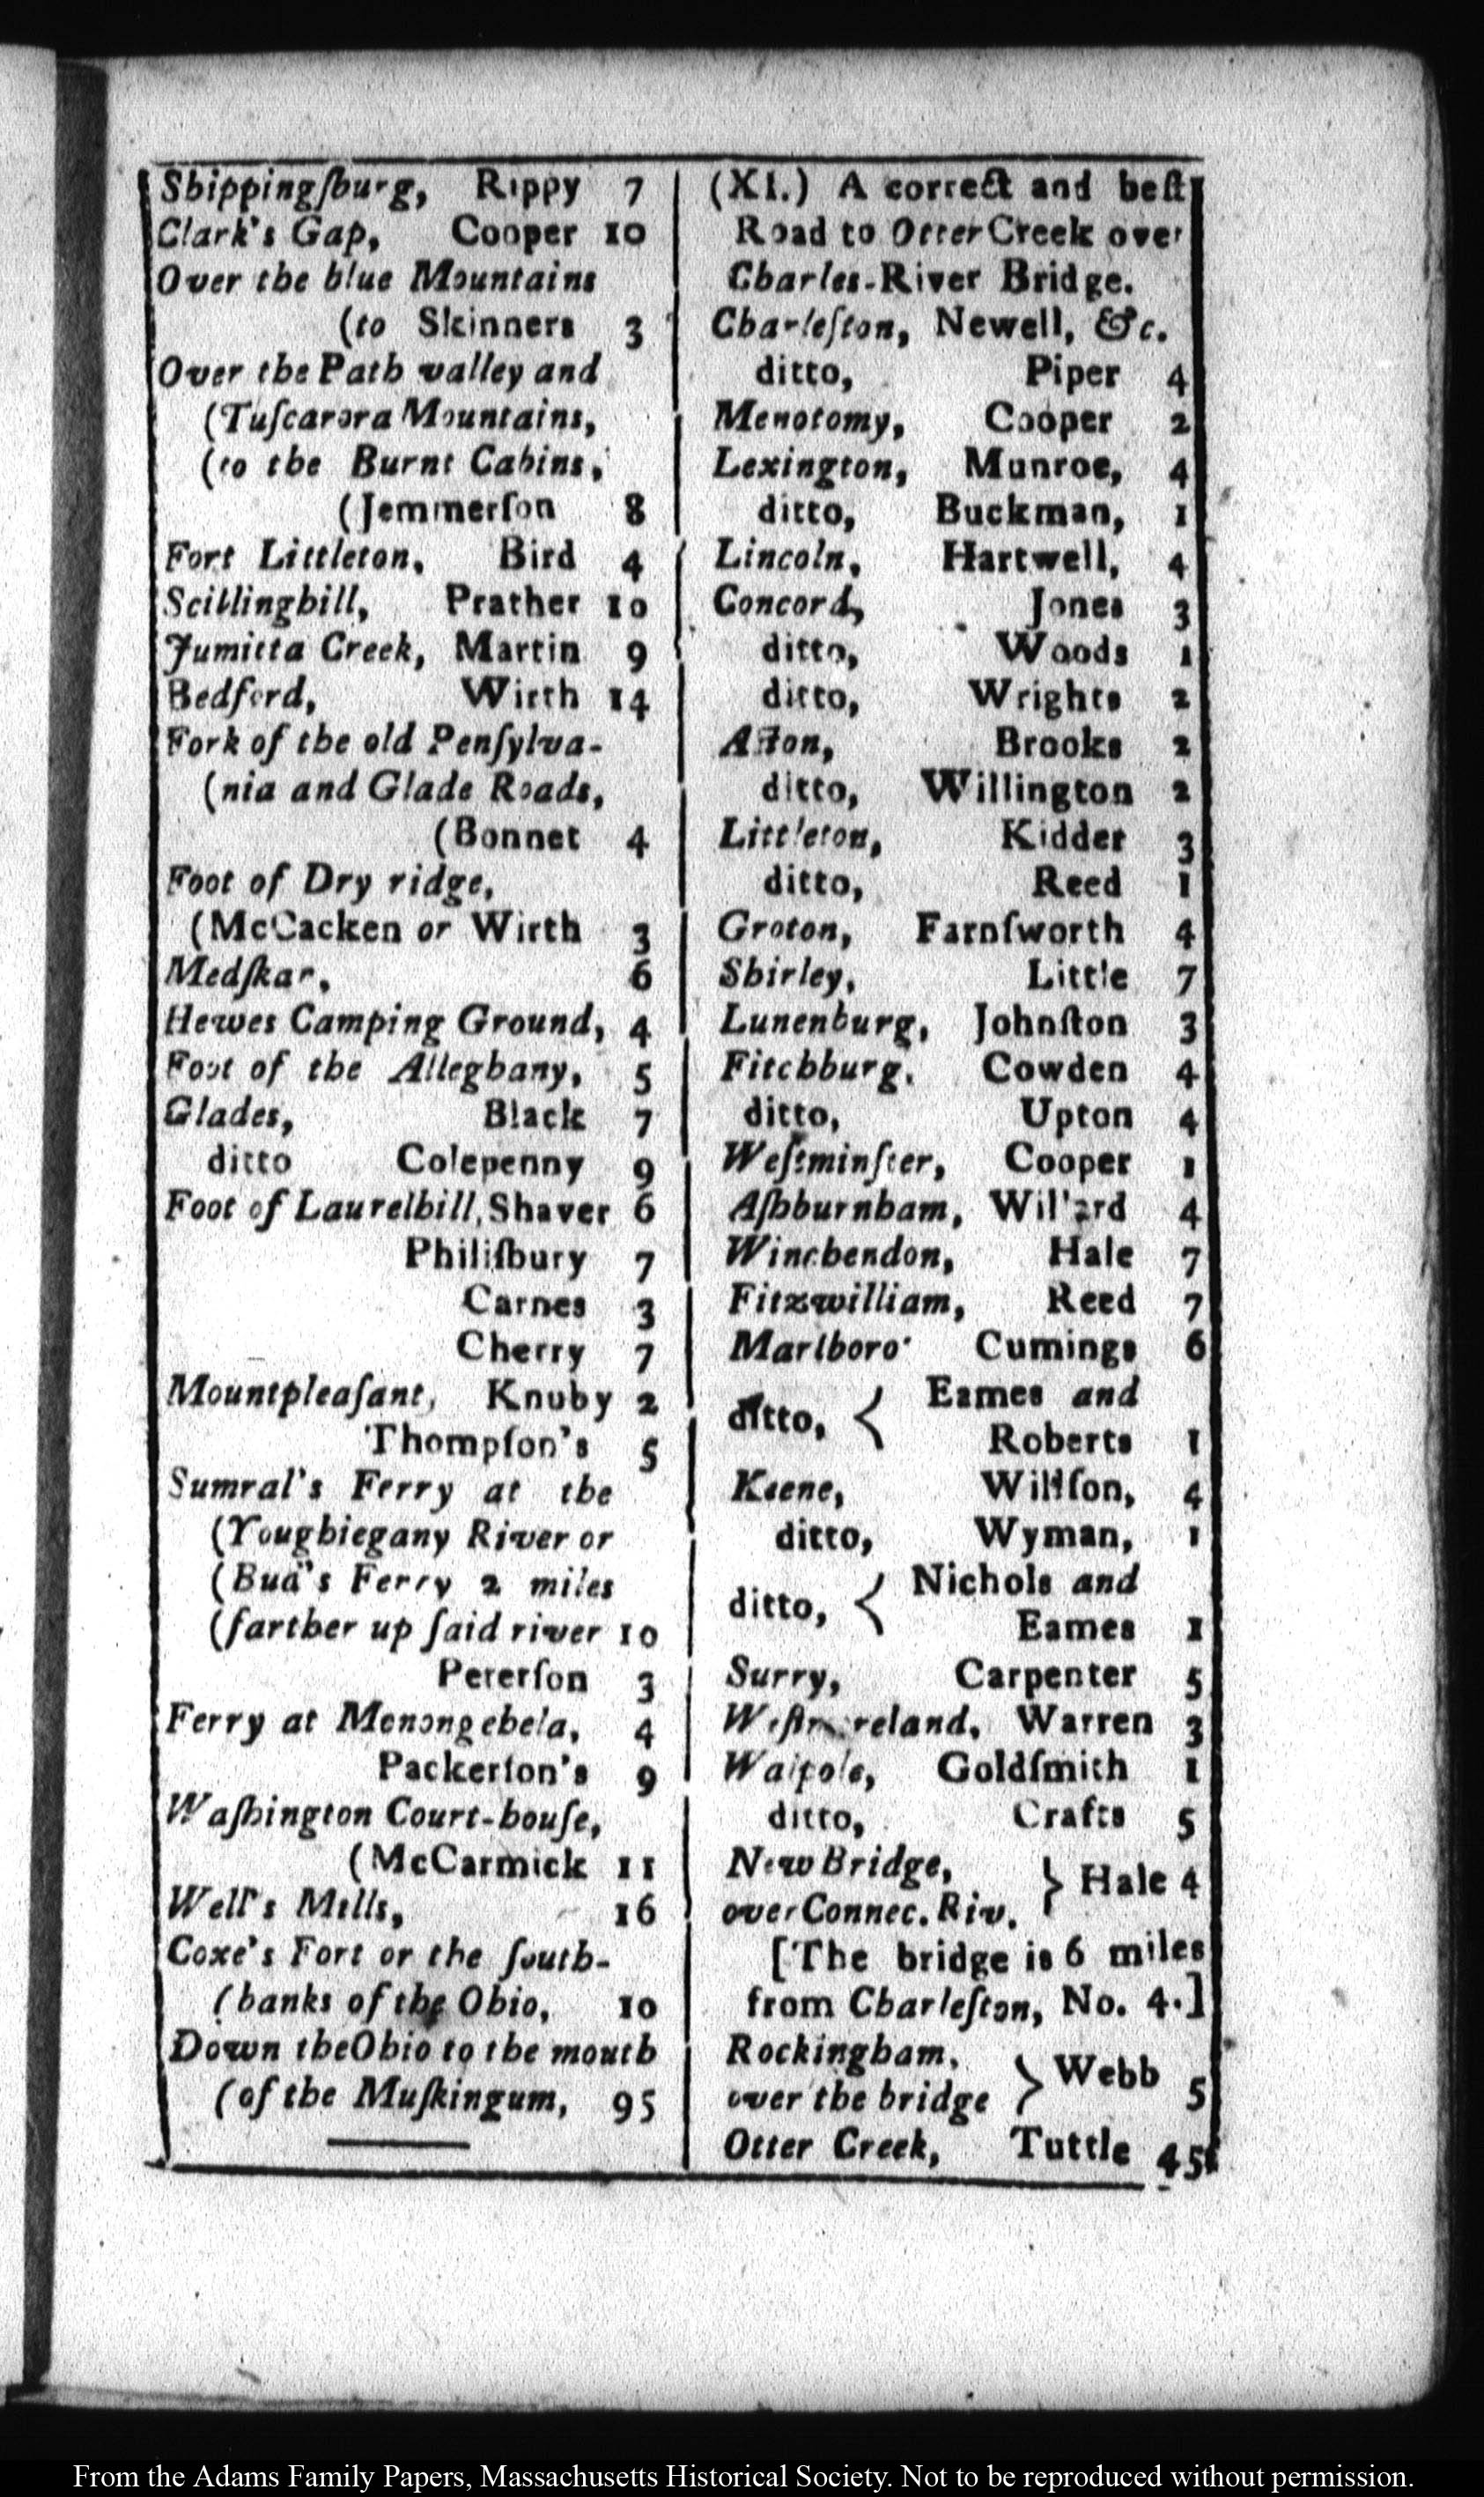 Shippingſburg, Rippy 7
Clark's Gap, Cooper 10
Over the blue Mountains
(to Skinners 3
Over the Path valley and
(Tuſcarora Mountains,
(to the Burnt Cabins,
(Jemmerſon 8
Fort Littleton, Bird 4
Scillinghill, Prather 10
Jumitta Creek, Martin 9
Bedford, Wirth 14
Fork of the old Penſylva-
(nia and Glade Roads,
(Bonnet 4
Foot of Dry ridge,
(McCacken or Wirth 3
Medſkar, 6
Hewes Camping Ground, 4
Foot of the Alleghany, 5
Glades, Black 7
ditto Colepenny 9
Foot of Laurelhill, Shaver 6
Philiſbury 7
Carnes 3
Cherry 7
Mountpleaſant, Knuby 2
Thompſon's 5
Sumral's Ferry at the
(Youghiegany River or
(Bud's Ferry 2 miles
(farther up ſaid river 10
Peterſon 3
Ferry at Menongehela, 4
Packerſon's 9
Waſhington Court-houſe,
(McCarmick 11
Well's Mills, 16
Coxe's Fort or the ſouth-
(banks of the Ohio, 10
Down the Ohio to the mouth
(of the Muſkingum, 95
(XI.) A correct and beſt
Road to Otter Creek over
Charles-River Bridge.
Charleſton, Newell, &c.
ditto, Piper 4
Menotomy, Cooper 2
Lexington, Munroe, 4
ditto, Buckman, 1
Lincoln, Hartwell, 4
Concord, Jones 3
ditto, Woods 1
ditto, Wrights 2
Acton, Brooks 2
ditto, Willington 2
Littleton, Kidder 3
ditto, Reed 1
Groton, Farnſworth 4
Shirley, Little 7
Lunenburg, Johnſton 3
Fitchburg, Cowden 4
ditto, Upton 4
Weſtminſter, Cooper 1
Aſhburnham, Willard 4
Winchendon, Hale 7
Fitzwilliam, Reed 7
Marlboro' Cumings 6
ditto, { Eames and
Roberts 1
Keene, Willſon, 4
ditto, Wyman, 1
ditto, { Nichols and
Eames 1
Surry, Carpenter 5
Weſtmoreland, Warren 3
Walpole, Goldſmith 1
ditto, Crafts 5
New Bridge, } Hale 4
over Connec. Riv.
[The bridge is 6 miles
from Charleſton, No. 4.]
Rockingham, } Webb 5
over the bridge
Otter Creek, Tuttle 45
From the Adams Family Papers, Massachusetts Historical Society. Not to be reproduced without permission.